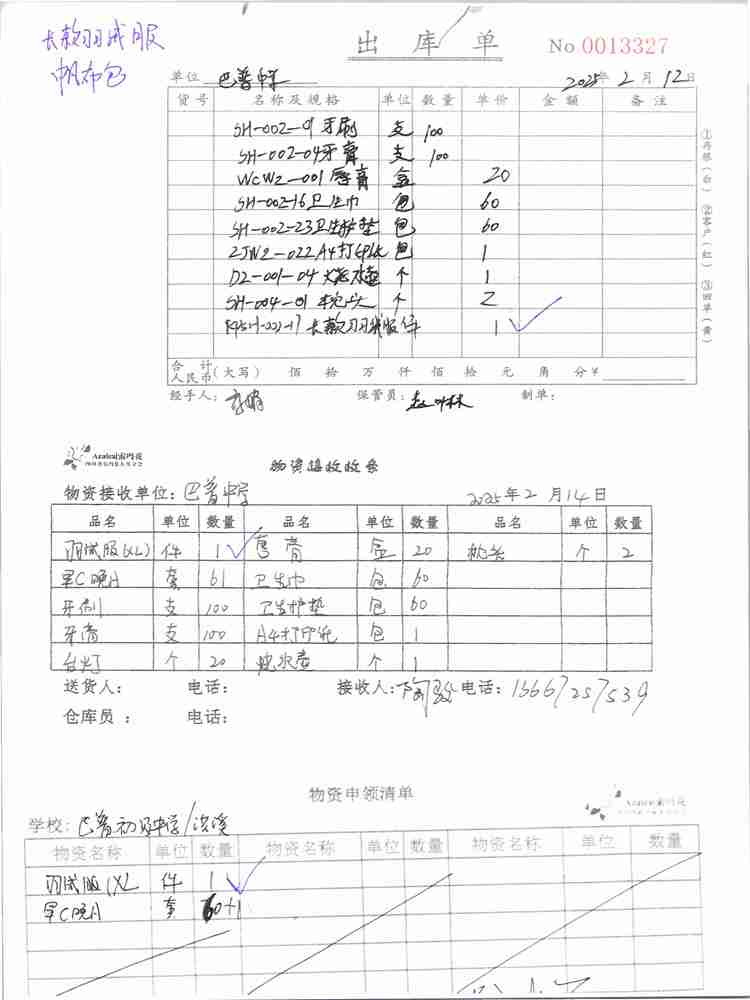 长款羽绒服
帆布包
出 库 单 No 0013327
单位 巴普中学 2025年2月12日
货号 名称及规格 单位 数量 单价 金额 备注
SH-002-01 牙刷 支 100
SH-002-04 牙膏 支 100
WCW2-001 唇膏 盒 20
SH-002-16 卫生巾 包 60
SH-002-23 卫生护垫 包 60
2JW2-022 A4打印纸 包 1
D2-001-04 烧水壶 个 1
SH-004-01 枕头 个 2
长款羽绒服 件 1
①存根(白) ②客户(红) ③回单(黄)
合计人民币(大写) 佰 拾 万 仟 佰 拾 元 角 分¥
经手人: 保管员: 制单:
Azalea索玛花
物资接收收条
物资接收单位:巴普中学 2025年2月14日
品名 单位 数量 品名 单位 数量 品名 单位 数量
羽绒服(XL) 件 1 唇膏 盒 20 枕头 个 2
套 61 卫生巾 包 60
牙刷 支 100 卫生护垫 包 60
牙膏 支 100 A4打印纸 包 1
台灯 个 20 烧水壶 个 1
送货人: 电话: 接收人: 电话:15667257539
仓库员: 电话:
物资申领清单
Azalea索玛花
学校:巴普初级中学/
物资名称 单位 数量 物资名称 单位 数量 物资名称 单位 数量
羽绒服(XL 件 1
套 60+1